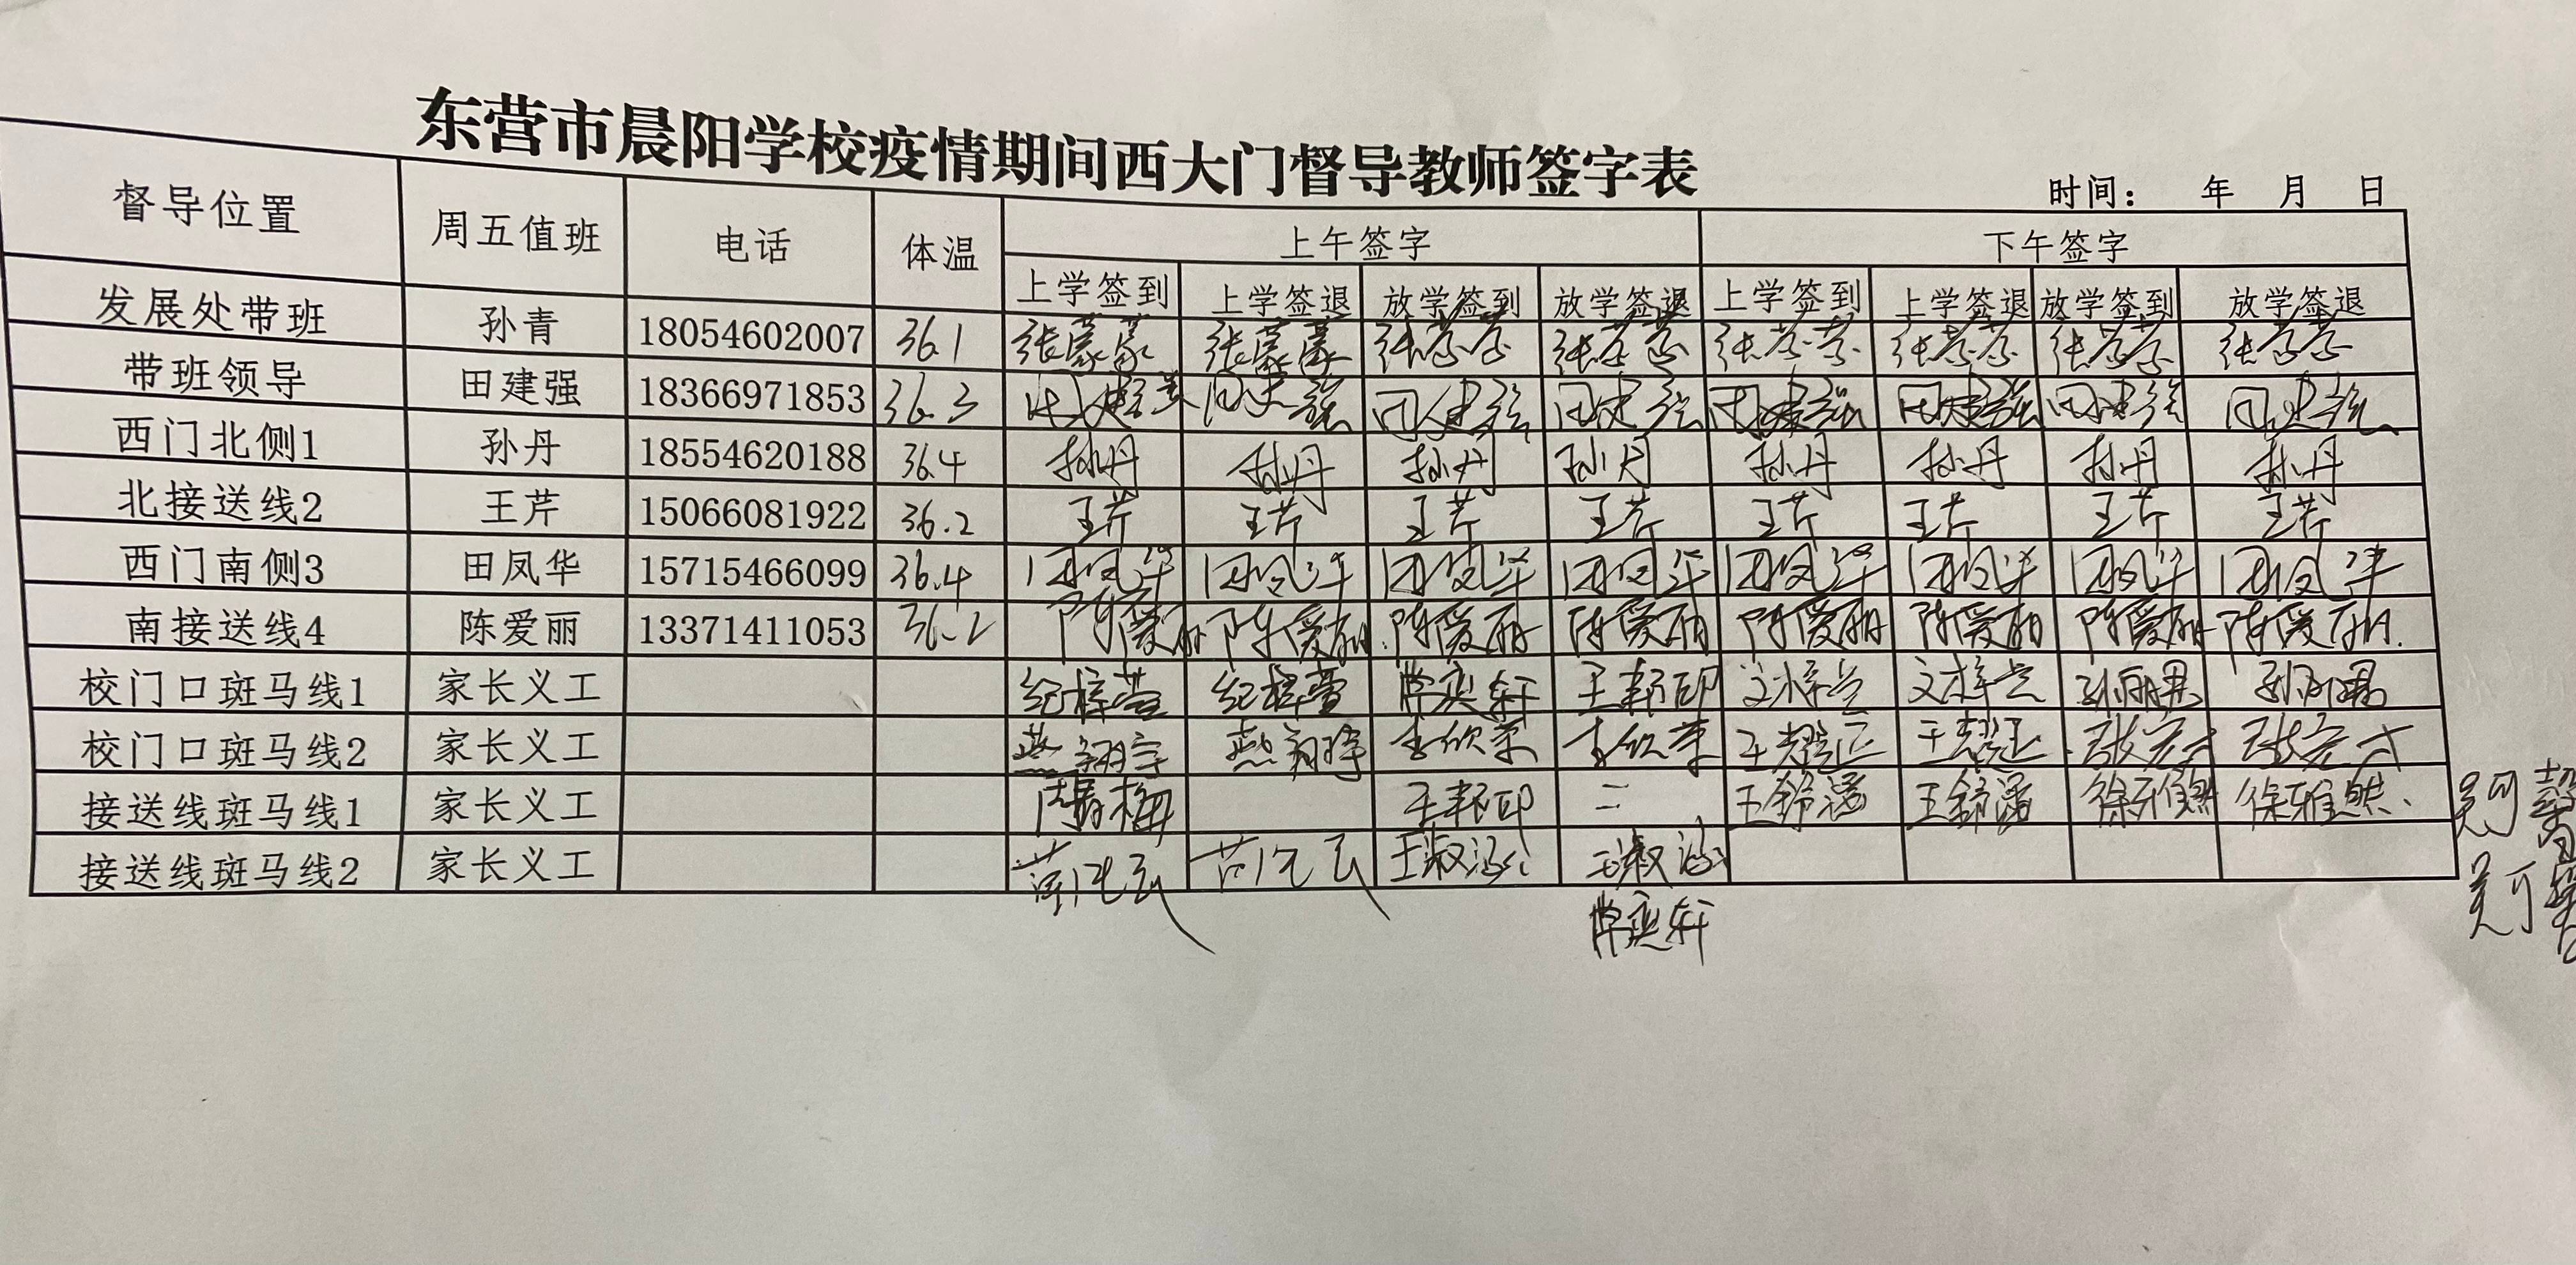 东营市晨阳学校疫情期间西大门督导教师签字表
时间： 年 月 日
督导位置 周五值班 电话 体温 上午签字 下午签字
上学签到 上学签退 放学签到 放学签退 上学签到 上学签退 放学签到 放学签退
发展处带班 孙青 18054602007 36.1 张蒙蒙 张蒙蒙
带班领导 田建强 18366971853 36.3 田建强 田建强 田建强 田建强 田建强 田建强 田建强 田建强
西门北侧1 孙丹 18554620188 36.4 孙丹 孙丹 孙丹 孙丹 孙丹 孙丹 孙丹 孙丹
北接送线2 王芹 15066081922 36.2 王芹 王芹 王芹 王芹 王芹 王芹 王芹 王芹
西门南侧3 田凤华 15715466099 36.4 田凤华 田凤华 田凤华 田凤华 田凤华 田凤华 田凤华 田凤华
南接送线4 陈爱丽 13371411053 36.2 陈爱丽 陈爱丽 陈爱丽 陈爱丽 陈爱丽 陈爱丽 陈爱丽 陈爱丽
校门口斑马线1 家长义工 纪梓萱 纪梓萱 王邦印
校门口斑马线2 家长义工 燕翔宇 燕翔宇 李欣荣 李欣荣 王耀正 王耀正
接送线斑马线1 家长义工 王邦印 二 王铃潇 王铃潇 徐雅然 徐雅然
接送线斑马线2 家长义工 王淑涵 王淑涵